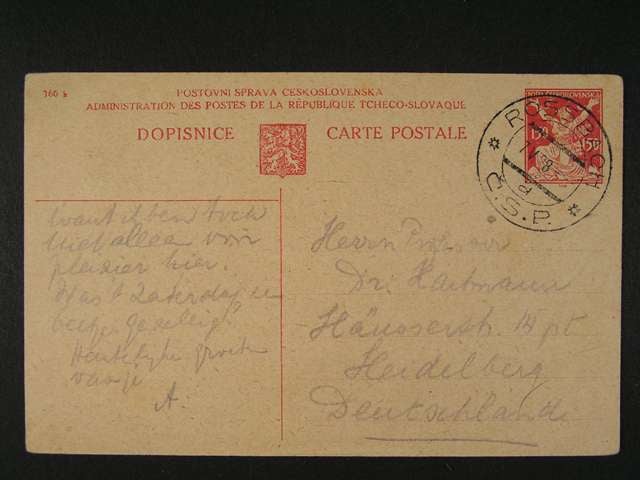 160 h
POSTOVNI SPRAVA ČESKOSLOVENSKÁ
ADMINISTRATION DES POSTES DE LA RÉPUBLIQUE TCHÉCO-SLOVAQUE
DOPISNICE
CARTE POSTALE
150
ROSSBACH
Č.S.P.
want ik ben toch
niet alleen voor
plezier hier.
Was 't Zaterdag
gezellig?
Hartelijke groeten
van je
A.
Herrn Professor
Dr. Hartmann
Häusserstr.
Heidelberg
Deutschland